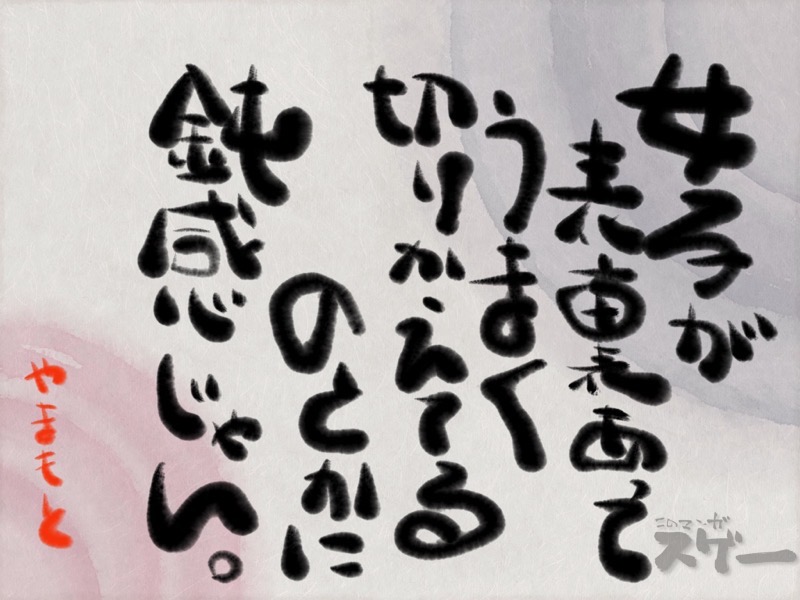 女子が
表裏あって
うまく
切りかえてる
のとかに
鈍感じゃん。
やまもと
このマンガ
スゲー